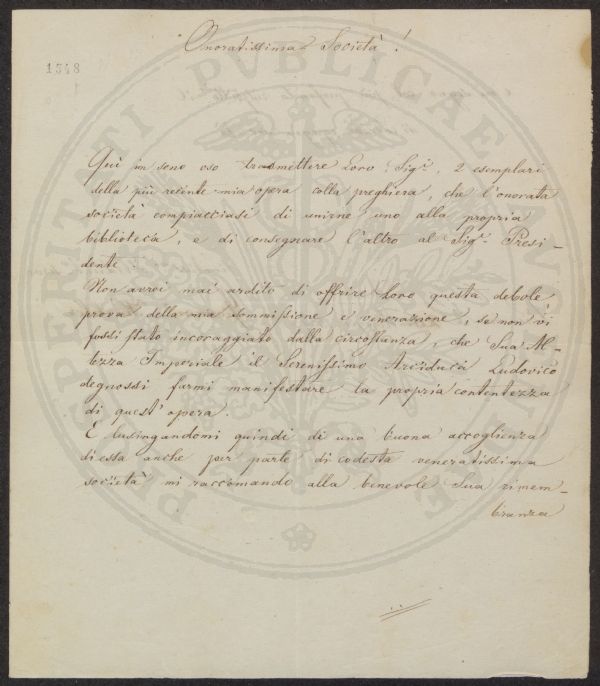 Onoratissima Società!
1348
Qui in seno oso trasmettere Loro Sig.ri, 2 esemplari
della più recente mia opera colla preghiera, che l'onorata
società compiacciasi di unirne uno alla propria
biblioteca, e di consegnare l'altro al Sig.r Presi-
dente.
Non avrei mai ardito di offrire Loro questa debole
prova della mia sommissione e venerazione, se non vi
fossi stato incoraggiato dalla circostanza, che Sua Al-
tezza Imperiale il Serenissimo Arciduca Ludovico
degnossi farmi manifestare la propria contentezza
di quest'opera.
E lusingandomi quindi di una buona accoglienza
di essa anche per parte di codesta veneratissima
società mi raccomando alla benevole Sua rimem-
branza
PROSPERITATI PUBLICAE